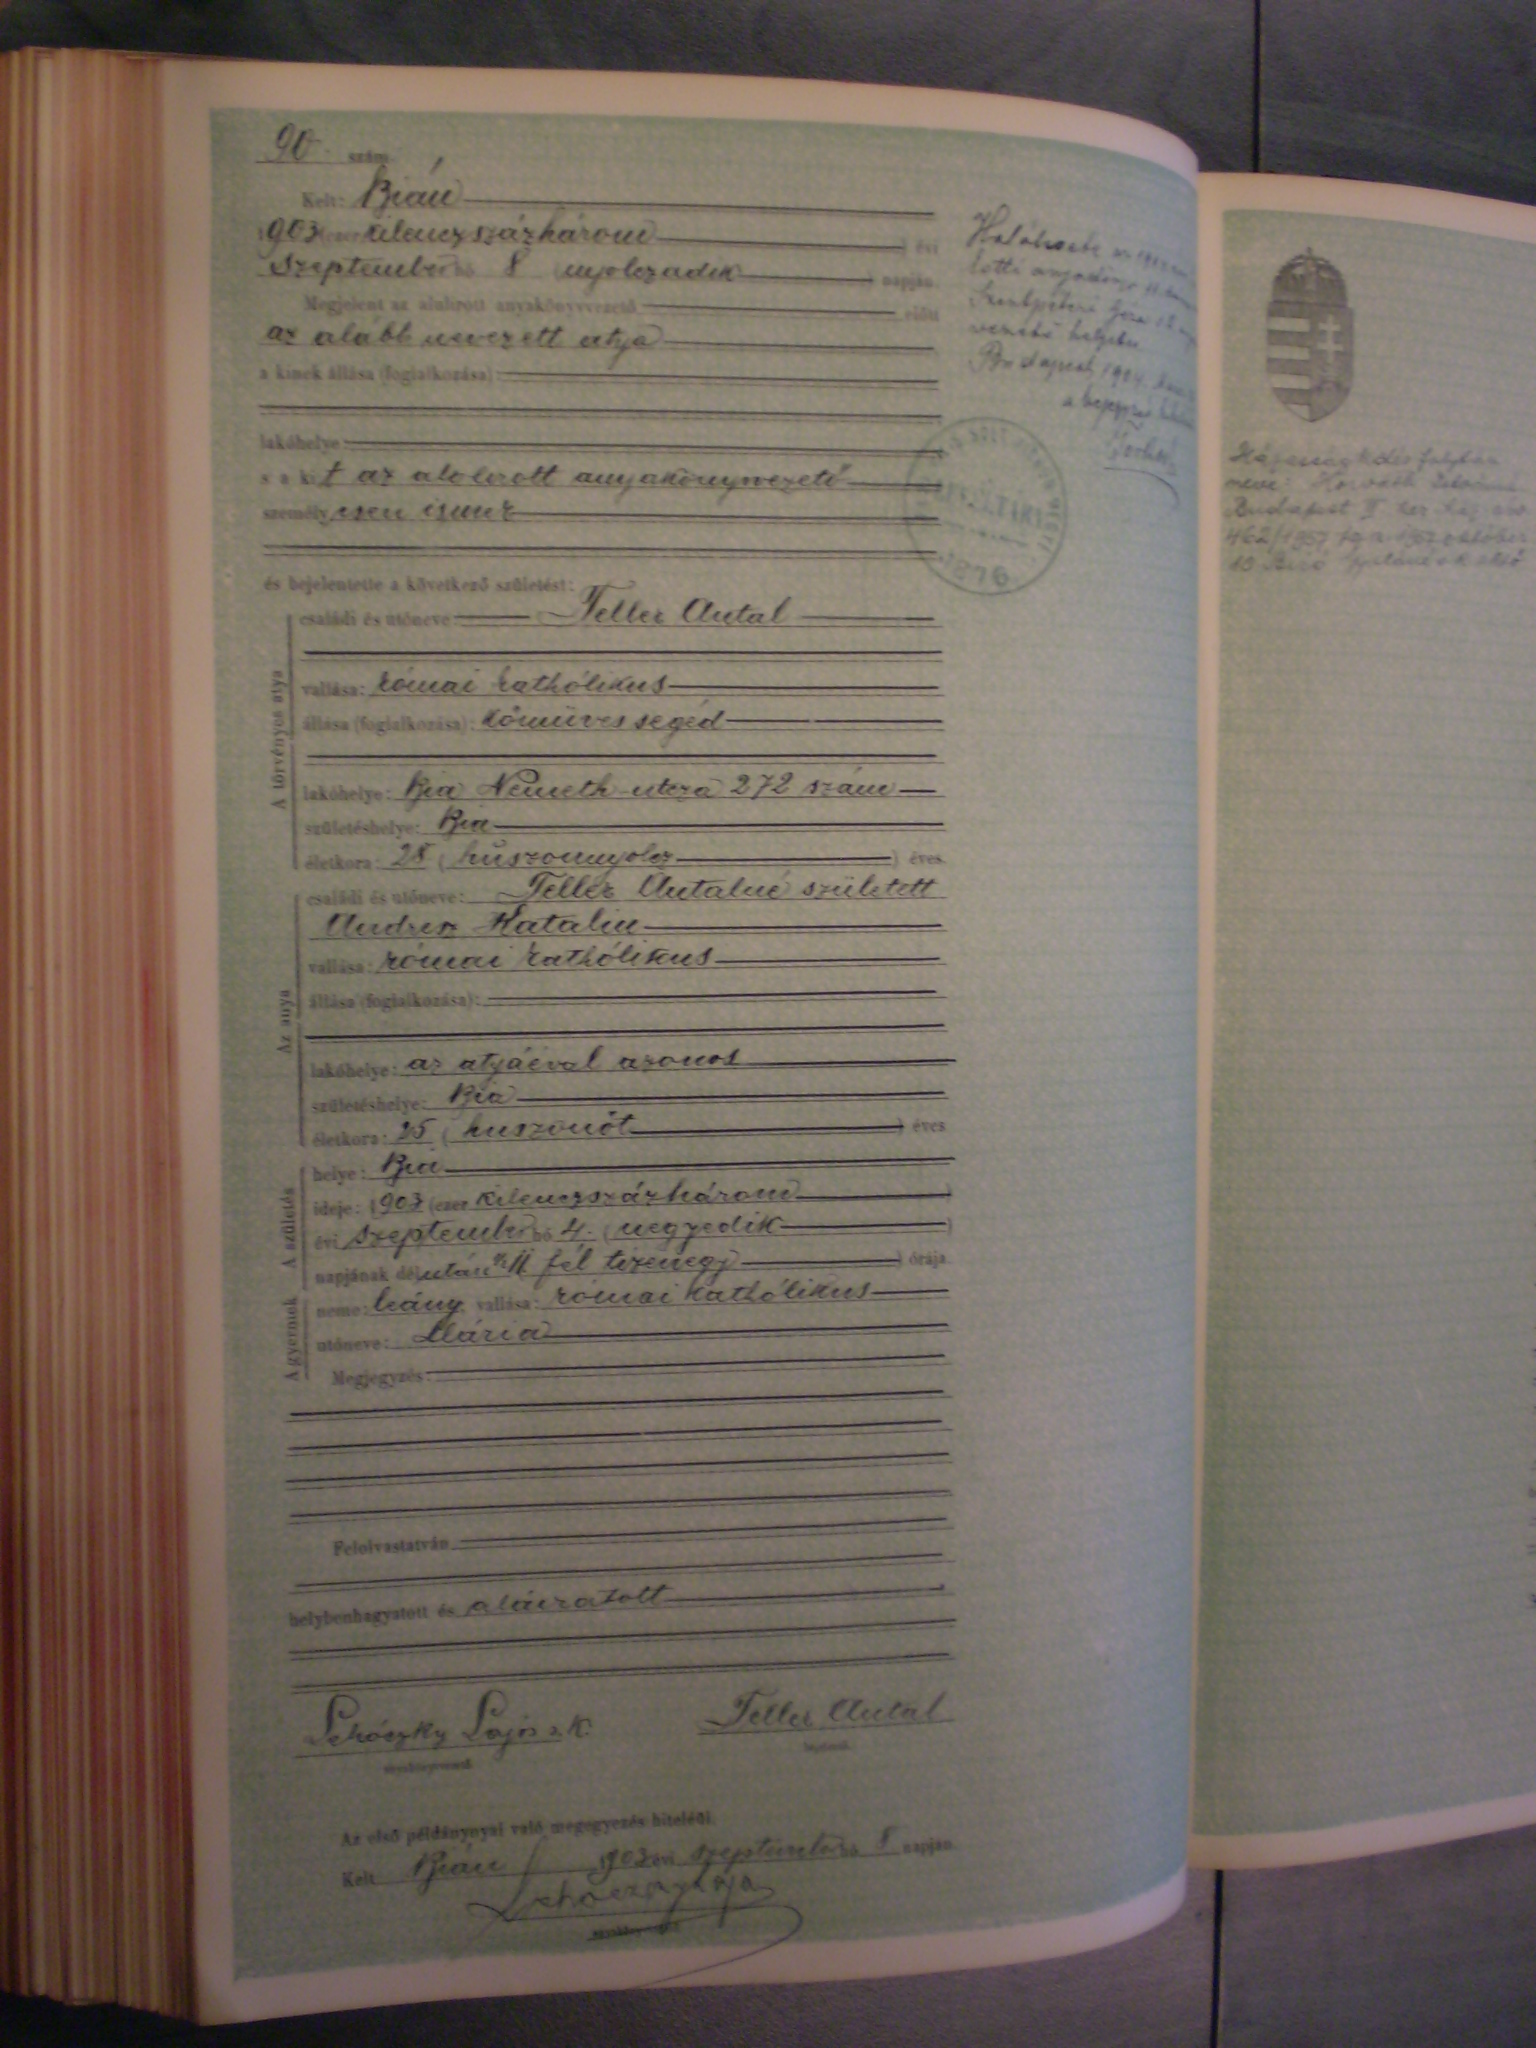 90. szám
Kelt: Bián
1903 (ezer kilenczszázhárom) évi
szeptember hó 8 (nyolczadik) napján.
Megjelent az alulirott anyakönyvvezető előtt
az alább nevezett atya
a kinek állása (foglalkozása)
lakóhelye
s a kit az alolirott anyakönyvvezető
személyesen ismer
és bejelentette a következő születést:
A törvényes atya
családi és utóneve Teller Antal
vallása: római kathólikus
állása (foglalkozása): kőmüves segéd
lakóhelye: Bia Németh-utcza 272 szám
születéshelye: Bia
életkora: 28 (huszonnyolcz) éves.
Az anya
családi és utóneve: Teller Antalné született
Andresz Katalin
vallása: római kathólikus
állása (foglalkozása):
lakóhelye: az atyáéval azonos
születéshelye: Bia
életkora: 25 (huszonöt) éves
A születés
helye: Bia
ideje: 1903 (ezer kilenczszázhárom)
évi szeptember hó 4. (negyedik)
napjának délután ½11 fél tizenegy) órája
A gyermek
neme: leány, vallása: római kathólikus
utóneve: Mária
Megjegyzés:
Felolvastatván
helybenhagyatott és aláiratott
Lajos s.k.
Teller Antal
bejelentő
anyakönyvvezető
Az első példánynyal való megegyezés hiteléül.
Kelt Bián 1903 évi szeptember hó 8 napján
anyakönyvvezető
helyében
Budapest, 1904.
a bejegyzés
Házasságkötés folytán
neve: Horváth
Budapest II. ker.
462/1957 1957 október